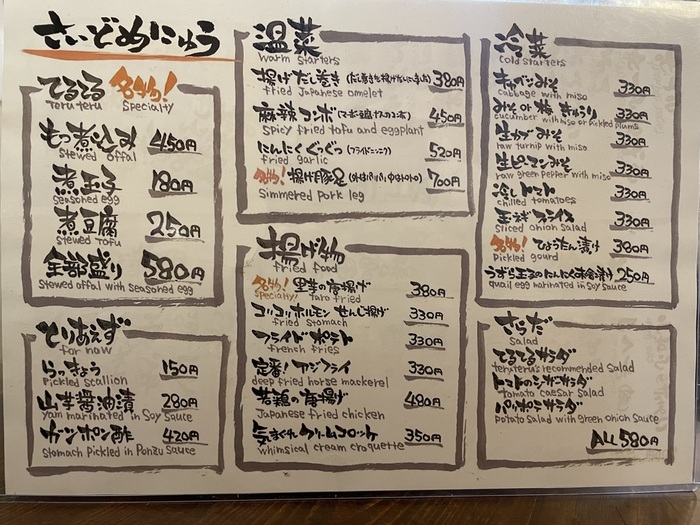 さいどめにゅう
てるてる 名物!
Teru teru Specialty
もつ煮込み 450円
Stewed offal
煮玉子 180円
Seasoned egg
煮豆腐 250円
Stewed Tofu
全部盛り 580円
Stewed offal with Seasoned egg
とりあえず
for now
らっきょう 150円
Pickled scallion
山芋醤油漬 280円
yam marinated in Soy Sauce
ガツポン酢 420円
Stomach Pickled in Ponzu Sauce
温菜
warm starters
揚げだし巻き 380円
fried Japanese omelet
麻辣コンボ 450円
Spicy fried tofu and eggplant
にんにくぐつぐつ 520円
fried garlic
名物! 揚げ豚足 700円
Simmered Pork leg
揚げ物
fried food
名物! 里芋の唐揚げ 380円
specialty! taro fried
コリコリホルモン せんじ揚げ 330円
fried Stomach
フライドポテト 330円
french fries
定番! アジフライ 330円
deep fried horse mackerel
若鶏の唐揚げ 480円
Japanese fried chicken
気まぐれクリームコロッケ 350円
whimsical cream croquette
冷菜
cold starters
キャベツみそ 330円
cabbage with miso
みそ or 梅 きゅうり 330円
cucumber with miso or pickled plums
生カブみそ 330円
raw turnip with miso
生ピーマンみそ 330円
raw green pepper with miso
冷しトマト 330円
chilled tomatoes
玉ねぎスライス 330円
Sliced onion Salad
名物! ひょうたん漬け 380円
Pickled gourd
うずら玉子のにんにく醤油漬け 250円
quail egg marinated in Soy Sauce
さらだ
Salad
てるてるサラダ
teruteru's recommended Salad
トマトのシーザーサラダ
Tomato caesar Salad
パリポテサラダ
Potato Salad with green onion Sauce
ALL 580円